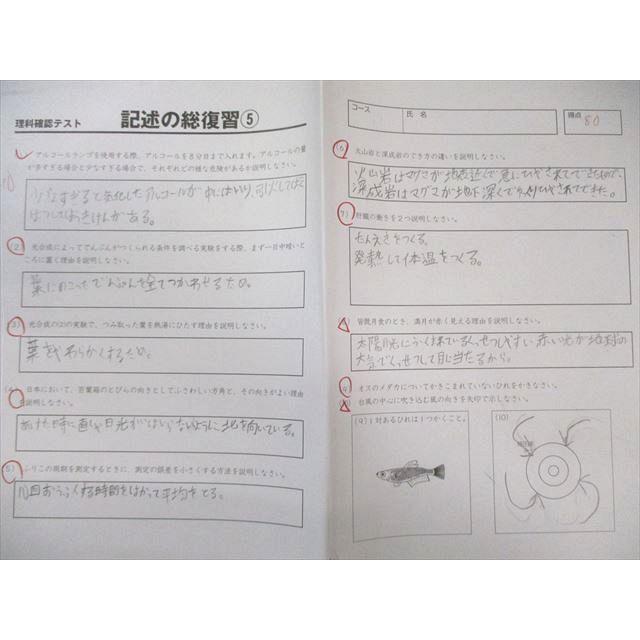 理科確認テスト 記述の総復習⑤
アルコールランプを使用する際、アルコールを8分目まで入れます。アルコールの量
が多すぎる場合と少なすぎる場合で、それぞれどの様な危険があるか説明しなさい。
1)
少なすぎると気化したアルコールが中にはいり、
ばくはつしておきけんがある。
(2) 光合成によってでんぷんがつくられる条件を調べる実験をする際、まず一日中暗いと
ころに置く理由を説明しなさい。
葉にのこったでんぷんを全てつかわせるため。
(3) 光合成の(2)の実験で、つみ取った葉を熱湯にひたす理由を説明しなさい。
葉をやわらかくするため。
(4) 日本において、百葉箱のとびらの向きとしてふさわしい方角と、その向きがよい理由
を説明しなさい。
あけた時に直しゃ日光がはいらないように北を向いている。
(5) ふりこの周期を測定するときに、測定の誤差を小さくする方法を説明しなさい。
10回おうふくする時間をはかって平均をとる。
コース 氏名 得点 80
(6) 火山岩と深成岩のでき方の違いを説明しなさい。
火山岩はマグマが地表近くで急にひやされてできたもので、
深成岩はマグマが地下深くでゆっくりひやされてできた。
(7) 肝臓の働きを2つ説明しなさい。
たんえきをつくる。
発熱して体温をつくる。
皆既月食のとき、満月が赤く見える理由を説明しなさい。
太陽光にふくまれているくっせつしやすい赤い光が地球の
大気でくっせつして月に当たるから。
オスのメダカについてかきこまれていないひれをかきなさい。
台風の中心に吹き込む風の向きを矢印で示しなさい。
(9) 1対あるひれは1つかくこと。
(10)